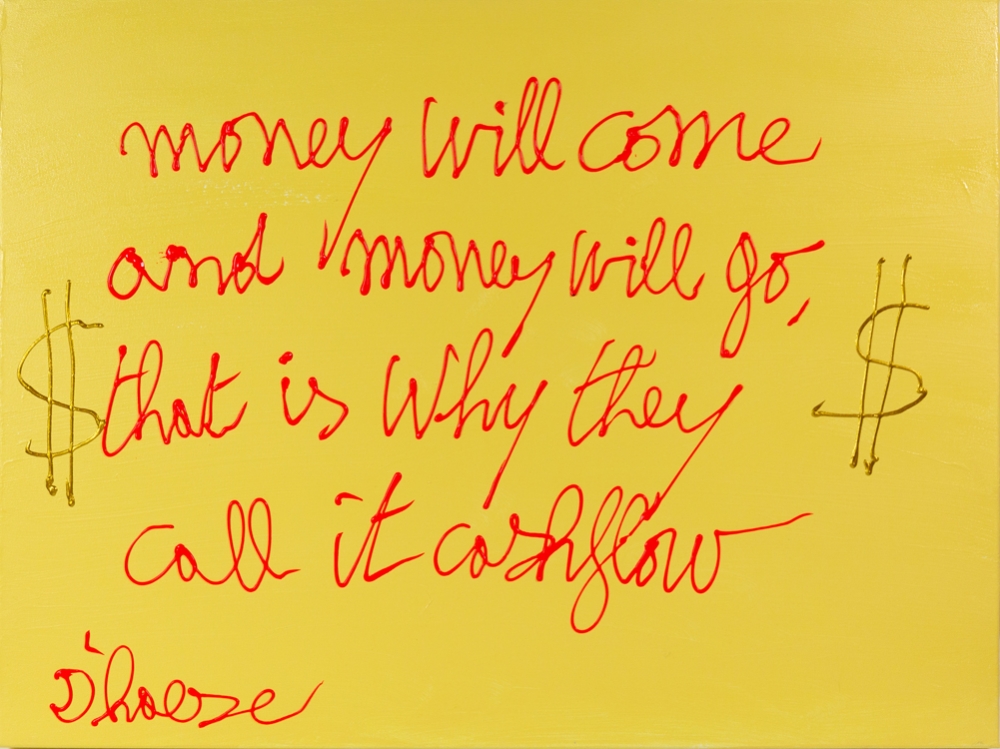 money will come
and money will go,
$ that is why they $
call it cashflow
D'haese